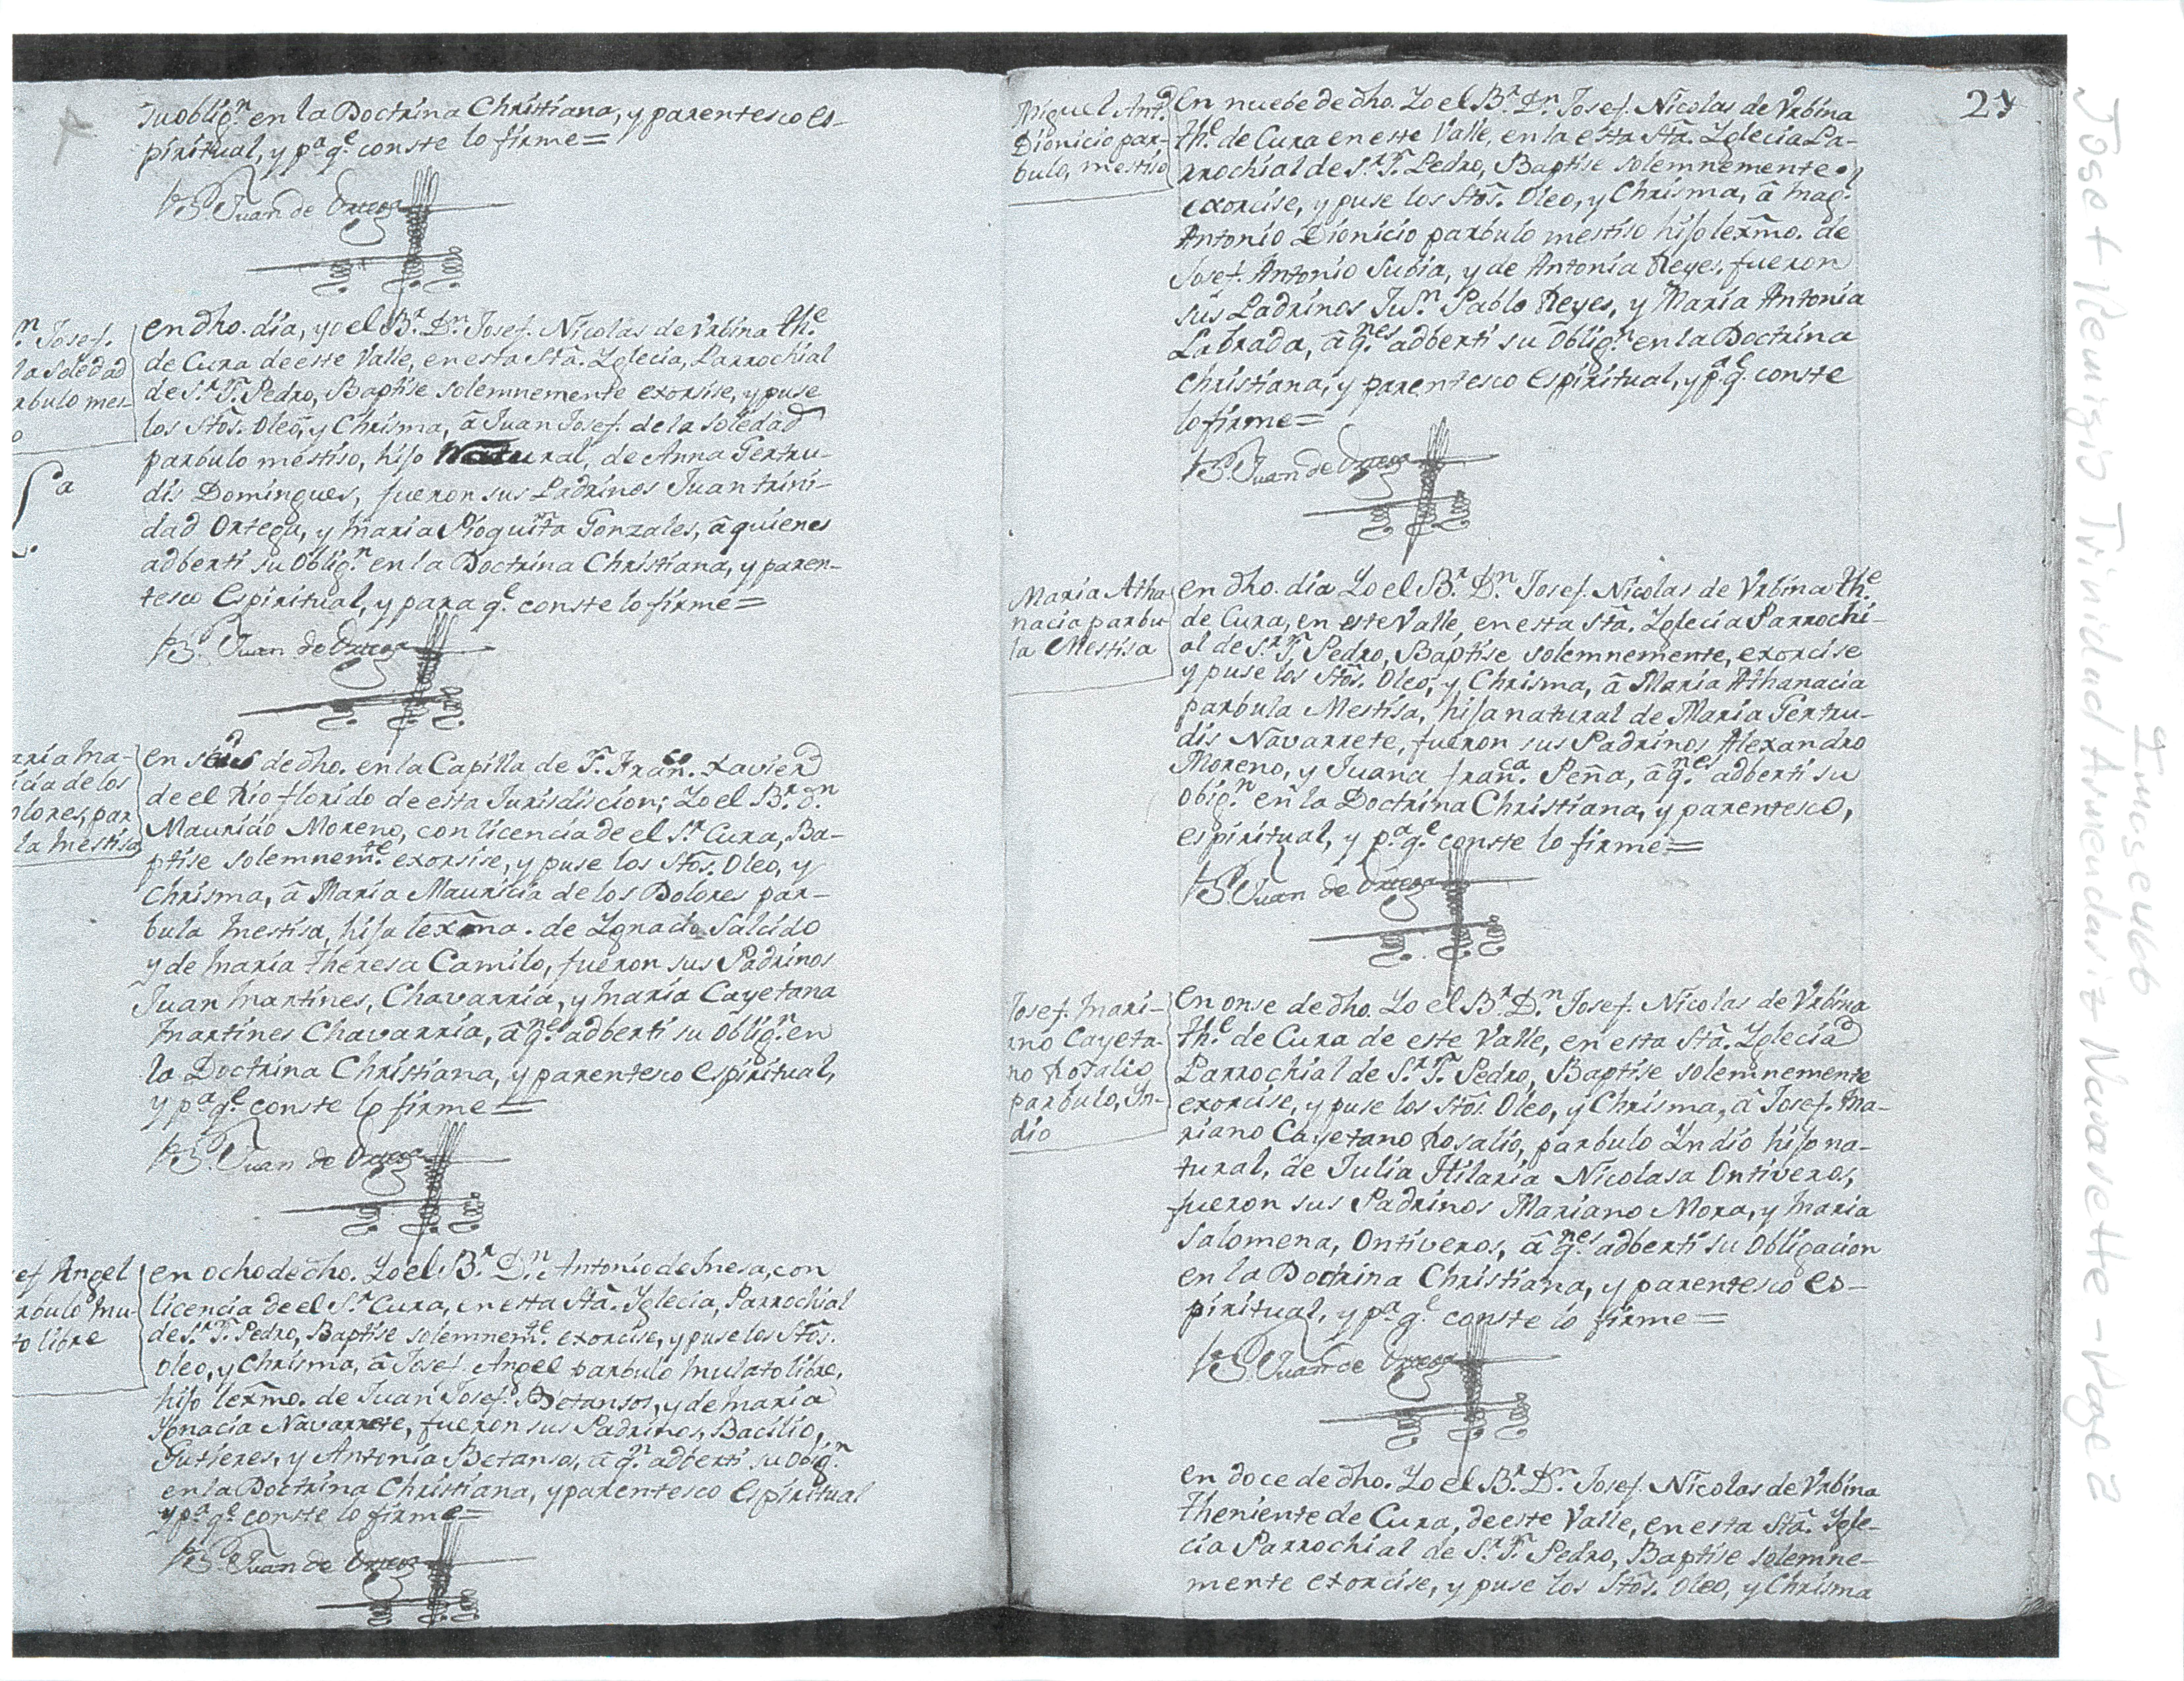 su oblig.n en la Doctrina Christiana, y parentesco es-
piritual, y p.a q.e conste lo firme=
B.r Juan de Ortega
n. Josef.
la Soledad
rbulo mes-
o
en dho. dia, yo el B.r D.n Josef. Nicolas de Vrbina th.e
de Cura de este Valle, en esta Stã. Yglecia, Parrochial
de S.r S. Pedro, Baptise solemnemente exorsise, y puse
los Stõs. Oleo, y Chrisma, â Juan Josef. de la Soledad
parbulo mestiso, hijo Natural, de Anna Gertru-
dis Domingues, fueron sus Padrinos Juan trini-
dad Ortega, y Maria Gonzales, â quienes
adberti su Oblig.n en la Doctrina Christiana, y paren-
tesco Espiritual, y para q.e conste lo firme=
B.r Juan de Ortega
aria Ma-
icia de los
olores, par
la Mestisa
en seis de dho. en la Capilla de S. Fran.co Xavier
de el Rio florido de esta Jurisdiscion; Yo el B.r d.n
Mauricio Moreno, con licencia de el S.r Cura, Ba-
ptise solemnem.te exorsise, y puse los Stõs. Oleo, y
Chrisma, â Maria Mauricia de los Dolores par-
bula Mestisa, hija lexma. de Ygnacio Salcido
y de Maria theresa Camilo, fueron sus Padrinos
Juan Martines, Chavarria, y Maria Cayetana
Martines Chavarria, â q.nes adberti su Oblig.n en
la Doctrina Christiana, y parentesco Espiritual,
y p.a q.e conste lo firme=
B.r Juan de Ortega
ef Angel
rbulo Mu-
to libre
en ocho de dho. Yo el B.r D.n Antonio de Mesa, con
licencia de el S.r Cura, en esta Stã. Yglecia, Parrochial
de S.r S. Pedro, Baptise solemnem.te exorcise, y puse los Stõs.
Oleo, y Chrisma, â Josef. Angel parbulo Mulato libre,
hijo lexmo. de Juan Josef. Betansos, y de Maria
Ygnacia Navarrete, fueron sus Padrinos, Bacilio,
Gutieres, y Antonia Betansos, â q.n adberti su Obig.n
en la Doctrina Christiana, y parentesco Espiritual
y p.a q.e conste lo firme=
B.r Juan de Ortega
24
Miguel Ant.o
Dionicio par-
bulo, mestiso
En nuebe de dho. Yo el B.r D.n Josef. Nicolas de Vrbina
th.e de Cura en este Valle, en la esta Stã. Yglecia Pa-
rrochial de S.r S. Pedro, Baptise solemnemente
exorcise, y puse los Stõs. Oleo, y Chrisma, â
Antonio Dionicio parbulo mestiso hijo lexmo. de
Josef. Antonio Subia, y de Antonia Reyes, fueron
sus Padrinos Pablo Reyes, y Maria Antonia
Labrada, â q.nes adberti su Oblig.n en la Doctrina
Christiana, y parentesco Espiritual, y p.a q.e conste
lo firme=
B.r Juan de Ortega
Maria Atha
nacia parbu
la Mestisa
en dho. dia Yo el B.r D.n Josef. Nicolas de Vrbina th.e
de Cura, en este Valle, en esta Stã. Yglecia Parrochi-
al de S.r S. Pedro, Baptise solemnemente, exorcise
y puse los Stõs. Oleo, y Chrisma, â Maria Athanacia
parbula Mestisa, hija natural de Maria Gertru-
dis Navarrete, fueron sus Padrinos Alexandro
Moreno, y Juana fran.ca Peña, â q.nes adberti su
obig.n en la Doctrina Christiana, y parentesco,
espiritual, y p.a q.e conste lo firme=
B.r Juan de Ortega
Josef. Mari-
ano Cayeta-
no Rosalio
parbulo, Yn-
dio
En onse de dho. Yo el B.r D.n Josef. Nicolas de Vrbina
th.e de Cura de este Valle, en esta Stã. Yglecia
Parrochial de S.r S. Pedro, Baptise solemnemente
exorcise, y puse los Stõs. Oleo, y Chrisma, â Josef. Ma-
riano Cayetano Rosalio, parbulo Yndio hijo na-
tural, de Julia Hilaria Nicolasa Ontiveros,
fueron sus Padrinos Mariano Mora, y Maria
Salomena, Ontiveros, â q.nes adberti su Obligacion
en la Doctrina Christiana, y parentesco es-
piritual, y p.a q.e conste lo firme=
B.r Juan de Ortega
en doce de dho. Yo el B.r D.n Josef. Nicolas de Vrbina
theniente de Cura, de este Valle, en esta Stã. Ygle-
cia Parrochial de S.r S. Pedro, Baptise solemne-
mente exorcise, y puse los Stõs. Oleo, y Chrisma
Josef Remigio Trinidad Armendariz Navarette - Page 2
Imas